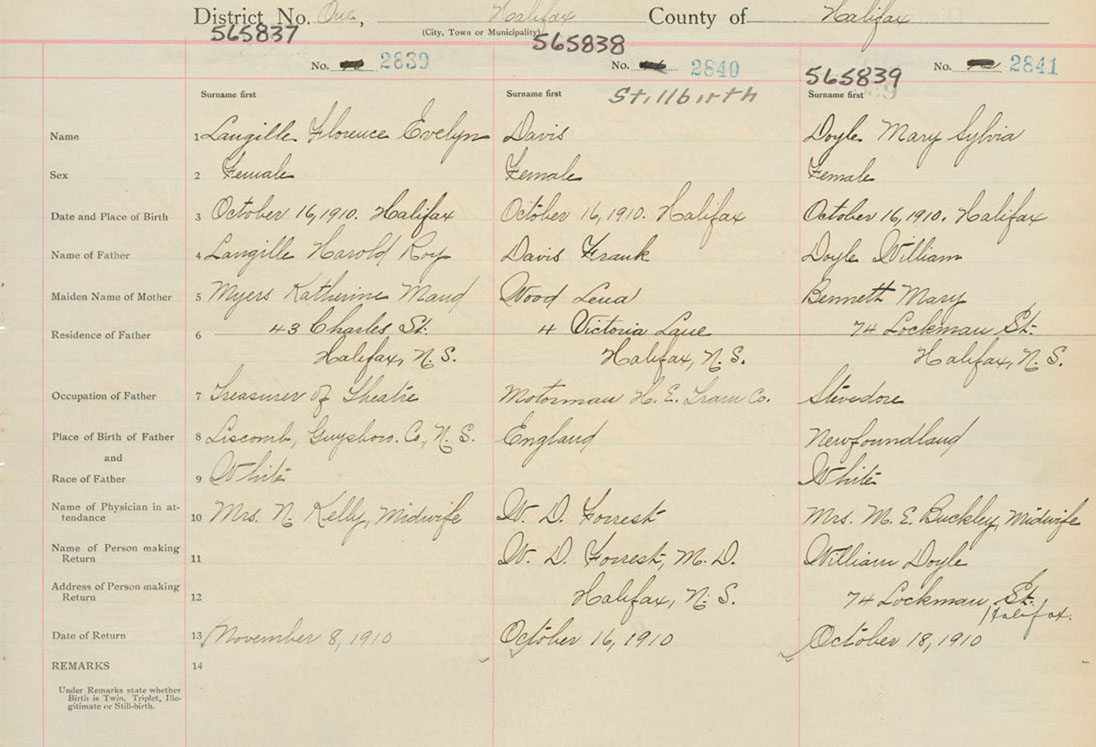 District No. One, Halifax County of Halifax
(City, Town or Municipality)
565837 565838
No. 2839 No. 2840 No. 2841
565839
Surname first Surname first Stillbirth Surname first
Name 1 Langille Florence Evelyn Davis Doyle Mary Sylvia
Sex 2 Female Female Female
Date and Place of Birth 3 October 16, 1910. Halifax October 16, 1910. Halifax October 16, 1910. Halifax
Name of Father 4 Langille Harold Roy Davis Frank Doyle William
Maiden Name of Mother 5 Myers Katherine Maud Wood Lena Bennett Mary
Residence of Father 6 43 Charles St. 4 Victoria Lane 74 Lockman St.
Halifax, N. S. Halifax, N. S. Halifax, N. S.
Occupation of Father 7 Treasurer of Theatre Motorman H. E. Tram Co. Stevedore
Place of Birth of Father 8 Liscomb, Guysboro. Co, N. S. England Newfoundland
and
Race of Father 9 White White
Name of Physician in at-
tendance 10 Mrs. N. Kelly, Midwife W. D. Forrest Mrs. M. E. Buckley, Midwife
Name of Person making
Return 11 W. D. Forrest, M. D. William Doyle
Address of Person making
Return 12 Halifax, N. S. 74 Lockman St.
Halifax.
Date of Return 13 November 8, 1910 October 16, 1910 October 18, 1910
REMARKS 14
Under Remarks state whether
Birth is Twin, Triplet, Ille-
gitimate or Still-birth.